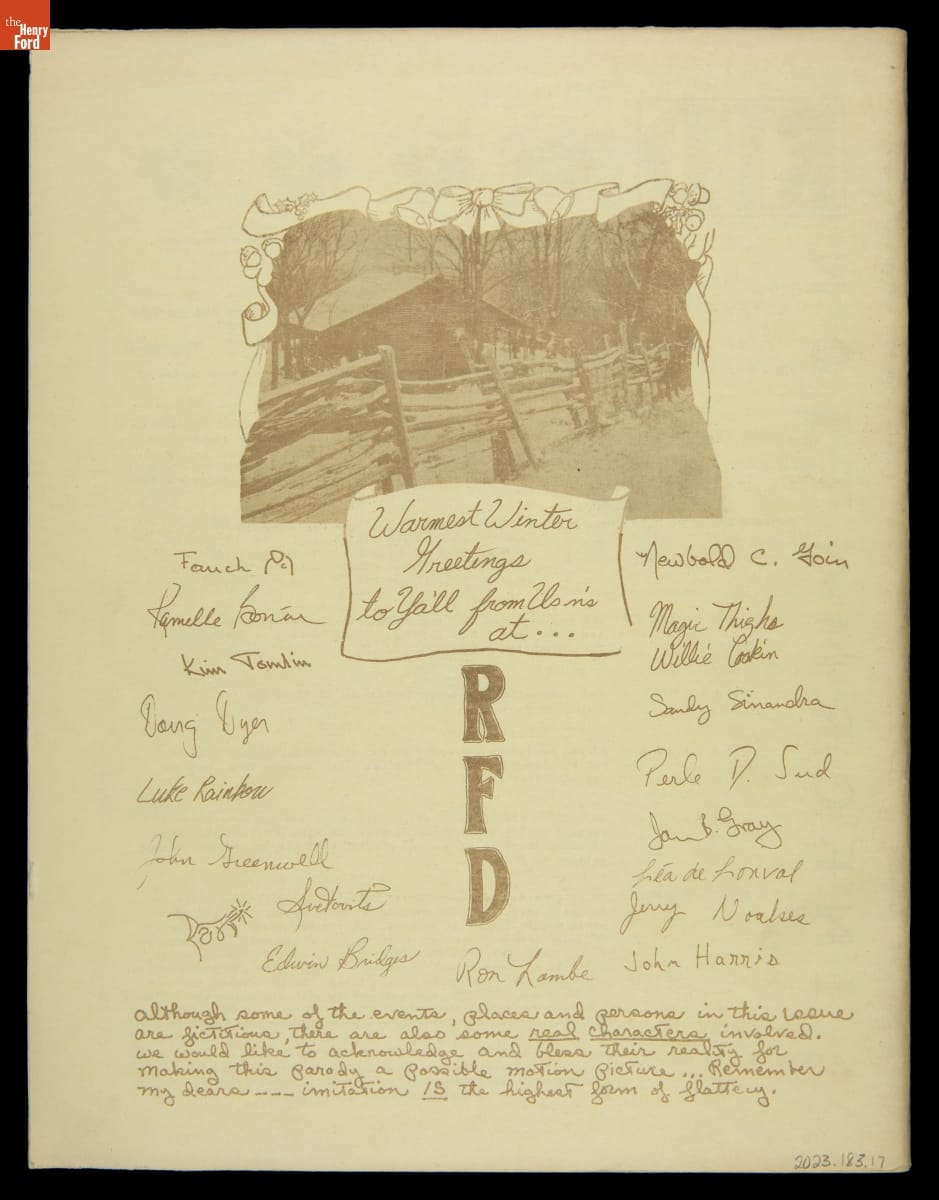 the
Henry
Ford
Warmest Winter
Greetings
to Ya'll from Us n's
at...
R
F
D
Fauch
Kim Tomlin
Doug Dyer
Luke Rainbow
John Greenwell
Svetovits
Edwin Bridges
Ron Lambe
Newbold C. Goin
Magic Thighs
Willie Cookin
Sandy Sinandra
Perle D. Sud
Jan B. Gray
Léa de Lonval
Jerry
John Harris
although some of the events, places and persons in this issue
are fictitious, there are also some real characters involved.
we would like to acknowledge and bless their reality for
making this parody a possible motion picture... Remember
my dears --- imitation IS the highest form of flattery.
2023.183.17